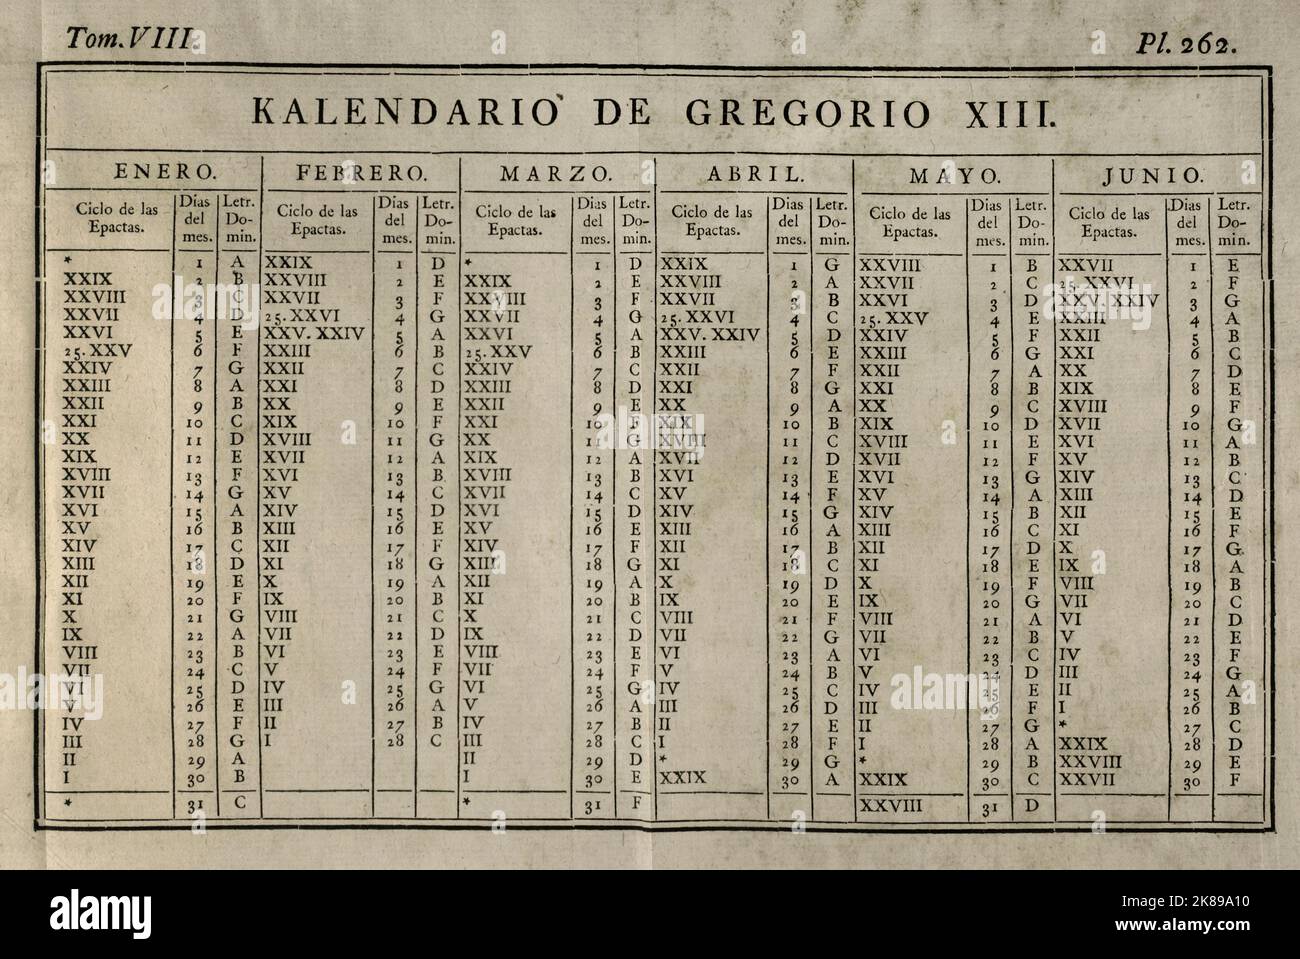 Tom. VIII
Pl. 262.
KALENDARIO DE GREGORIO XIII.
ENERO. FEBRERO. MARZO. ABRIL. MAYO. JUNIO.
Ciclo de las Dias Letr. Ciclo de las Dias Letr. Ciclo de las Dias Letr. Ciclo de las Dias Letr. Ciclo de las Dias Letr. Ciclo de las Dias Letr.
Epactas. del Do- Epactas. del Do- Epactas. del Do- Epactas. del Do- Epactas. del Do- Epactas. del Do-
mes. min. mes. min. mes. min. mes. min. mes. min. mes. min.
* 1 A XXIX 1 D * 1 D XXIX 1 G XXVIII 1 B XXVII 1 E
XXIX 2 B XXVIII 2 E XXIX 2 E XXVIII 2 A XXVII 2 C 25.XXVI 2 F
XXVIII 3 C XXVII 3 F XXVIII 3 F XXVII 3 B XXVI 3 D XXV.XXIV 3 G
XXVII 4 D 25.XXVI 4 G XXVII 4 G 25.XXVI 4 C 25.XXV 4 E XXIII 4 A
XXVI 5 E XXV.XXIV 5 A XXVI 5 A XXV.XXIV 5 D XXIV 5 F XXII 5 B
25.XXV 6 F XXIII 6 B 25.XXV 6 B XXIII 6 E XXIII 6 G XXI 6 C
XXIV 7 G XXII 7 C XXIV 7 C XXII 7 F XXII 7 A XX 7 D
XXIII 8 A XXI 8 D XXIII 8 D XXI 8 G XXI 8 B XIX 8 E
XXII 9 B XX 9 E XXII 9 E XX 9 A XX 9 C XVIII 9 F
XXI 10 C XIX 10 F XXI 10 F XIX 10 B XIX 10 D XVII 10 G
XX 11 D XVIII 11 G XX 11 G XVIII 11 C XVIII 11 E XVI 11 A
XIX 12 E XVII 12 A XIX 12 A XVII 12 D XVII 12 F XV 12 B
XVIII 13 F XVI 13 B XVIII 13 B XVI 13 E XVI 13 G XIV 13 C
XVII 14 G XV 14 C XVII 14 C XV 14 F XV 14 A XIII 14 D
XVI 15 A XIV 15 D XVI 15 D XIV 15 G XIV 15 B XII 15 E
XV 16 B XIII 16 E XV 16 E XIII 16 A XIII 16 C XI 16 F
XIV 17 C XII 17 F XIV 17 F XII 17 B XII 17 D X 17 G
XIII 18 D XI 18 G XIII 18 G XI 18 C XI 18 E IX 18 A
XII 19 E X 19 A XII 19 A X 19 D X 19 F VIII 19 B
XI 20 F IX 20 B XI 20 B IX 20 E IX 20 G VII 20 C
X 21 G VIII 21 C X 21 C VIII 21 F VIII 21 A VI 21 D
IX 22 A VII 22 D IX 22 D VII 22 G VII 22 B V 22 E
VIII 23 B VI 23 E VIII 23 E VI 23 A VI 23 C IV 23 F
VII 24 C V 24 F VII 24 F V 24 B V 24 D III 24 G
VI 25 D IV 25 G VI 25 G IV 25 C IV 25 E II 25 A
V 26 E III 26 A V 26 A III 26 D III 26 F I 26 B
IV 27 F II 27 B IV 27 B II 27 E II 27 G * 27 C
III 28 G I 28 C III 28 C I 28 F I 28 A XXIX 28 D
II 29 A II 29 D * 29 G * 29 B XXVIII 29 E
I 30 B I 30 E XXIX 30 A XXIX 30 C XXVII 30 F
* 31 C * 31 F XXVIII 31 D
alamy
Image ID: 2K89A10
www.alamy.com